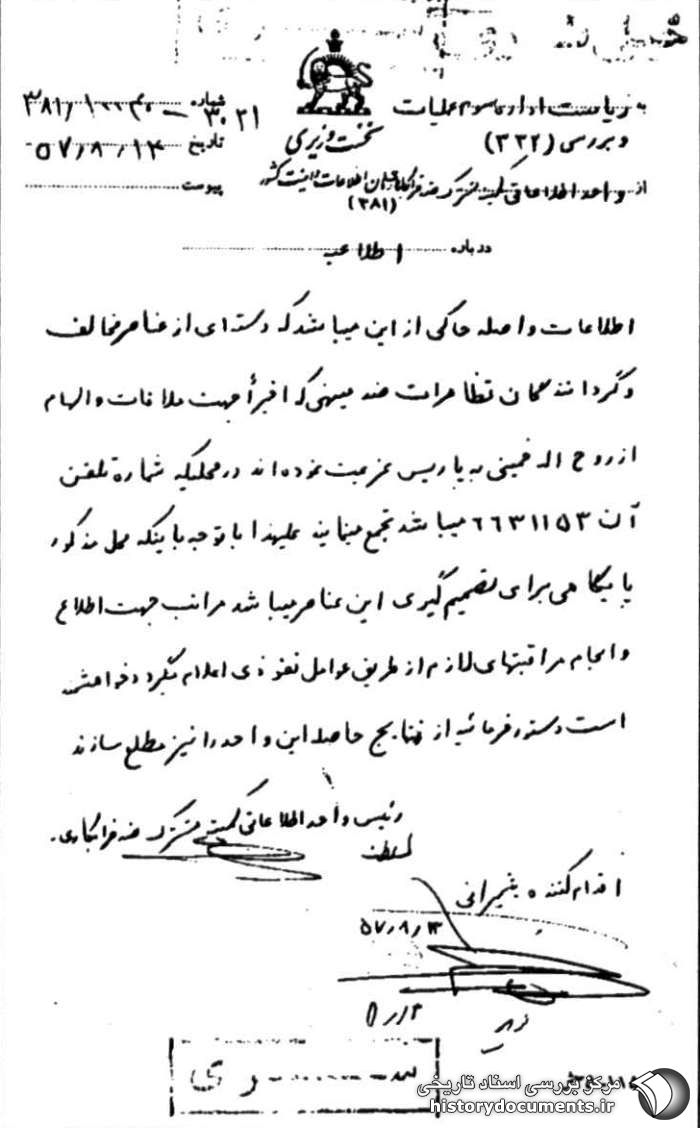 به ریاست اداره سوم عملیات
و بررسی (۳۳۲)
نخست وزیری
شماره
تاریخ ۵۷/۸/۱۴
پیوست
از واحد اطلاعاتی کمیته مشترک ضد خرابکاری اطلاعات و امنیت کشور
(۳۸۱)
درباره اطلاعیه
اطلاعات واصله حاکی از این میباشد که دسته‌ای از عناصر مخالف
و گردانندگان تظاهرات ضد میهنی که اخیراً جهت ملاقات و الهام
از روح اله خمینی به پاریس عزیمت نموده‌اند در محلیکه شماره تلفن
آن ۶۶۳۱۱۵۳ میباشد تجمع مینمایند علیهذا با توجه باینکه محل مذکور
پایگاهی برای تصمیم گیری این عناصر میباشد مراتب جهت اطلاع
و انجام مراقبتهای لازم از طریق عوامل نفوذی اعلام میگردد خواهشمند
است دستور فرمائید از نتایج حاصله این واحد را نیز مطلع سازند
رئیس واحد اطلاعاتی کمیته مشترک ضد خرابکاری.
اقدام کننده
۵۷/۸/۱۳
سری
مرکز بررسی اسناد تاریخی
historydocuments.ir